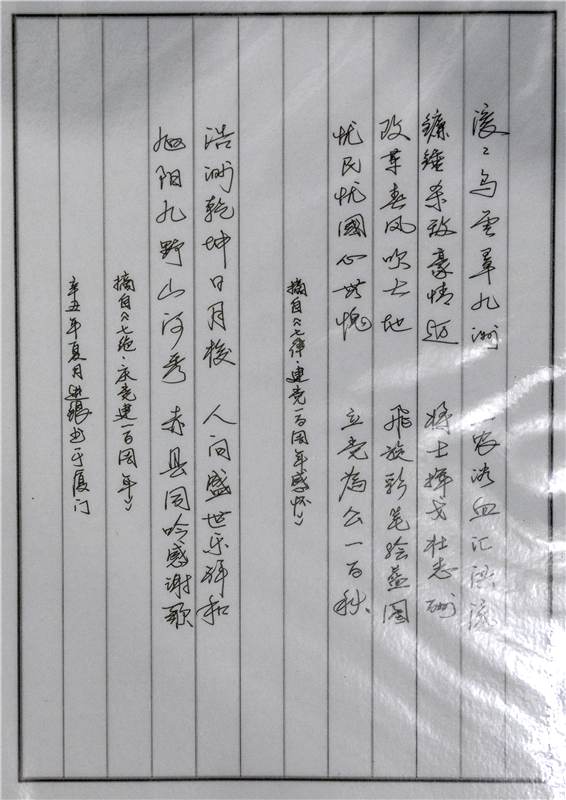 滚〻乌雲罩九洲 工农浴血汇洪流
镰锤杀敌豪情迈 将士挥戈壮志酬
改革春风吹大地 飛旋彩笔绘蓝圖
忧民忧國心无愧 立党為公一百秋
摘自《七律·建党一百周年感怀》
浩渺乾坤日月梭 人间盛世乐祥和
旭阳九野山河秀 赤县同吟感谢歌
摘自《七绝·庆党建一百周年》
辛丑年夏月进银书于厦门